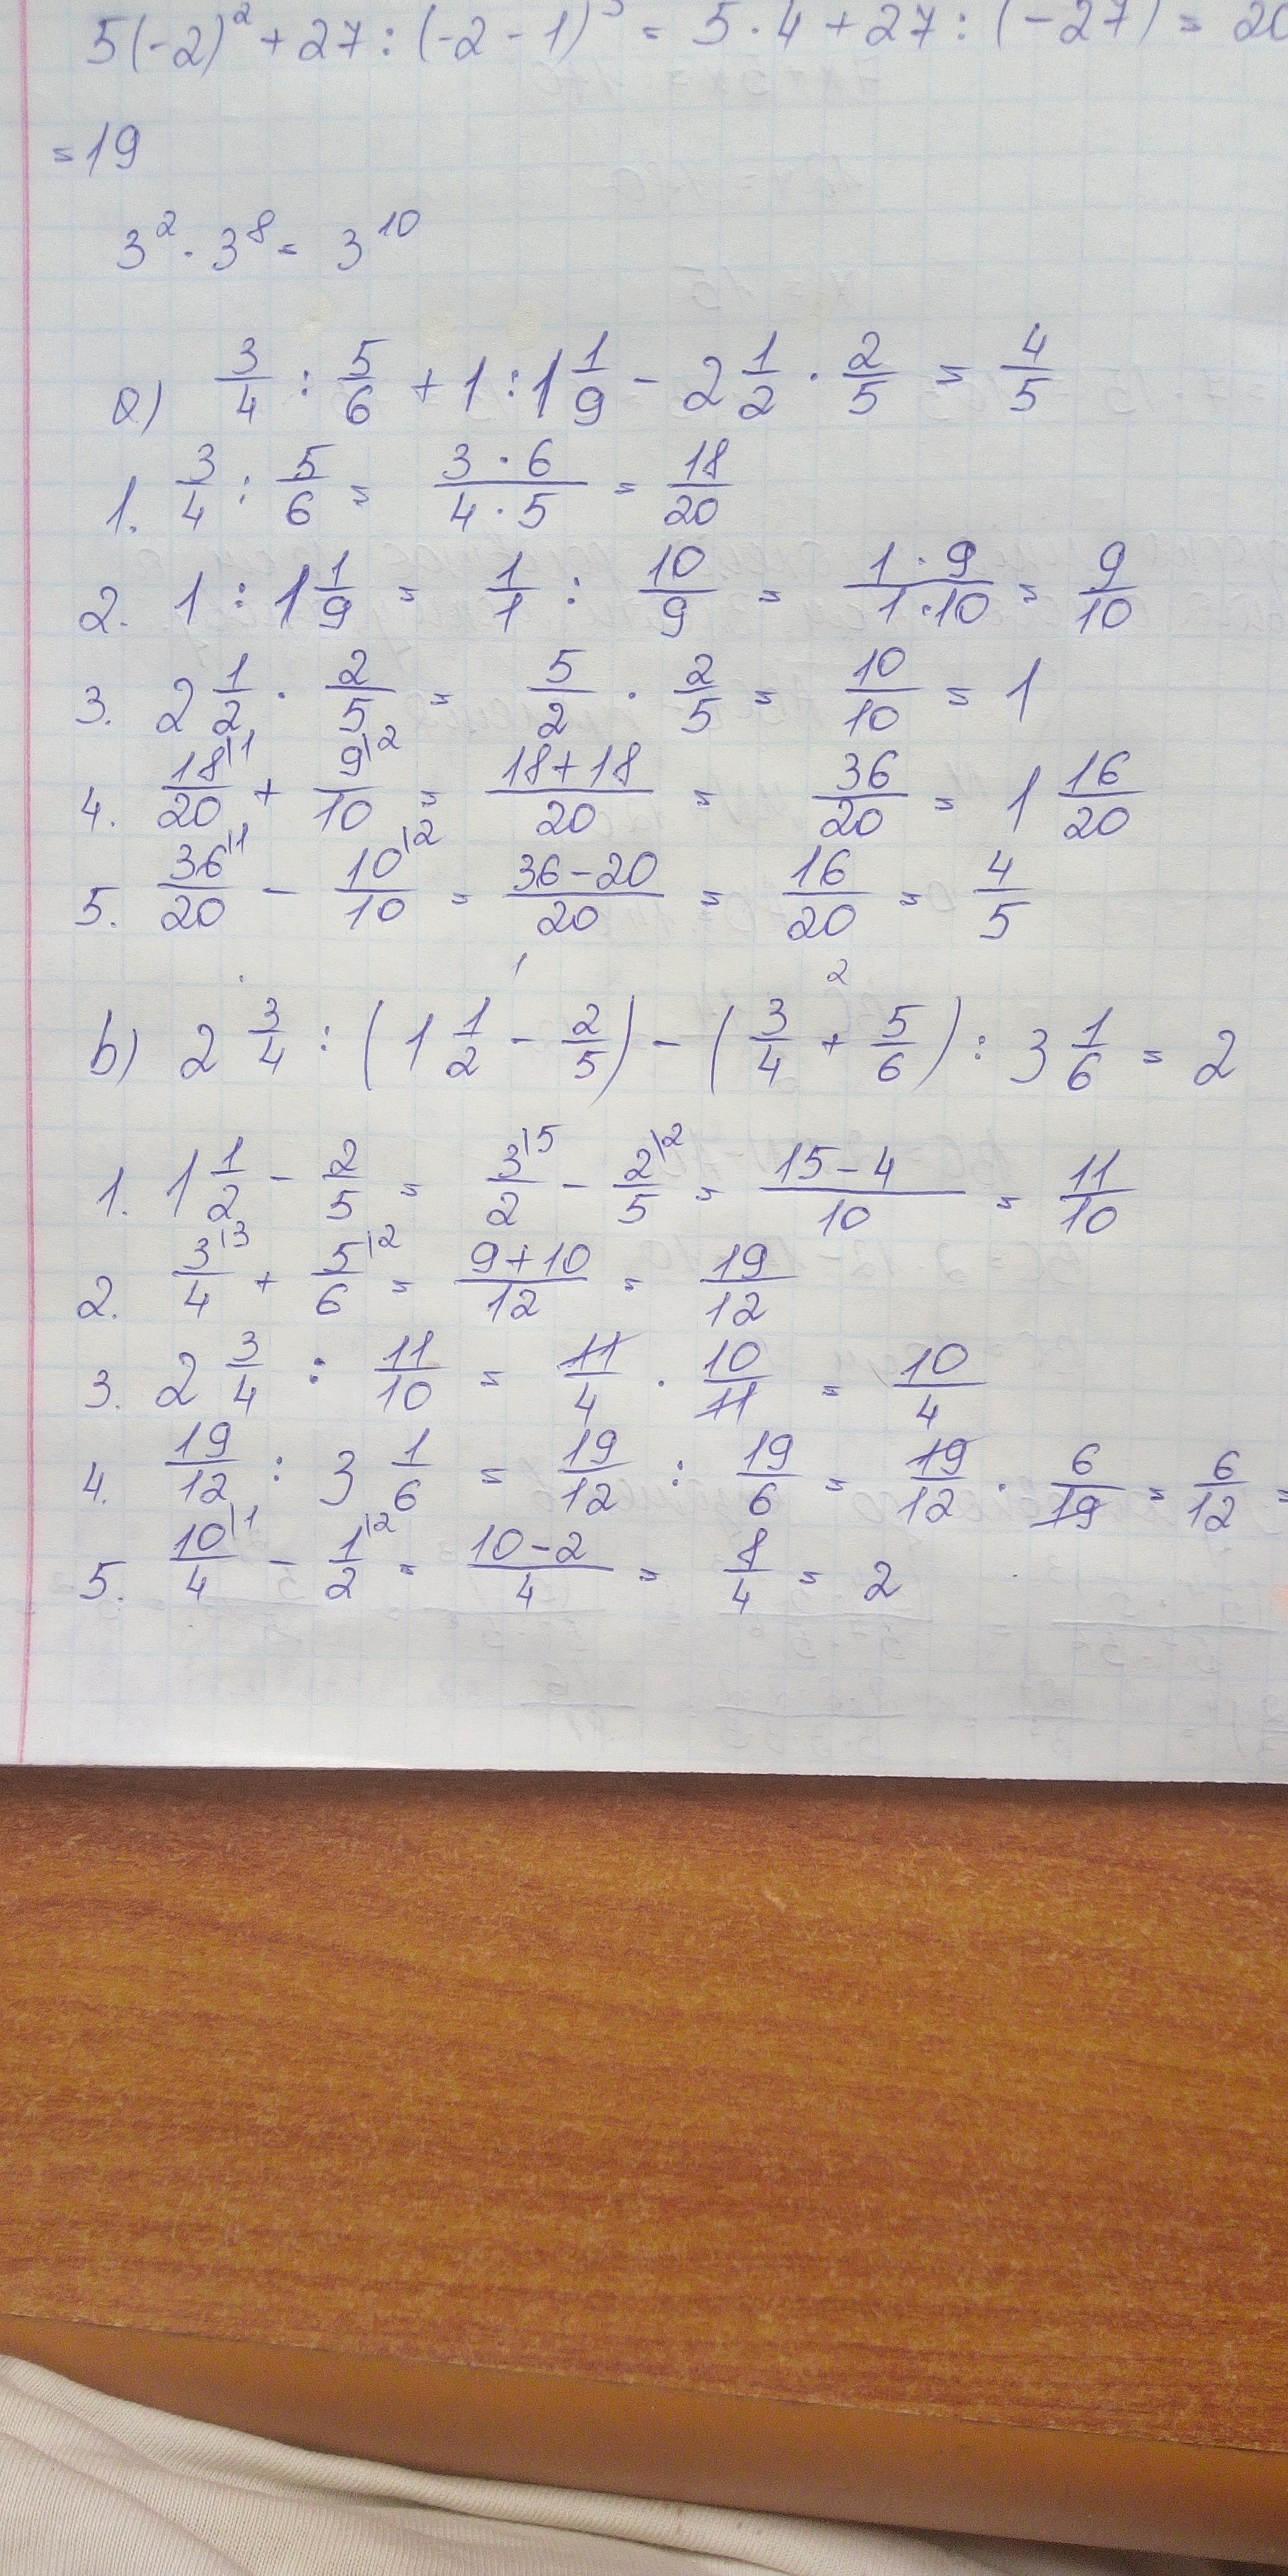 5(-2)² + 27 : (-2 - 1)³ = 5 · 4 + 27 : (-27) = 20
= 19
3² · 3⁸ = 3¹⁰
a) 3/4 : 5/6 + 1 : 1 1/9 - 2 1/2 · 2/5 = 4/5
1. 3/4 : 5/6 = (3 · 6)/(4 · 5) = 18/20
2. 1 : 1 1/9 = 1/1 : 10/9 = (1 · 9)/(1 · 10) = 9/10
3. 2 1/2 · 2/5 = 5/2 · 2/5 = 10/10 = 1
4. 18\1/20 + 9\2/10 = (18+18)/20 = 36/20 = 1 16/20
5. 36\1/20 - 10\2/10 = (36-20)/20 = 16/20 = 4/5
1 2
b) 2 3/4 : (1 1/2 - 2/5) - (3/4 + 5/6) : 3 1/6 = 2
1. 1 1/2 - 2/5 = 3\5/2 - 2\2/5 = (15-4)/10 = 11/10
2. 3\3/4 + 5\2/6 = (9+10)/12 = 19/12
3. 2 3/4 : 11/10 = 11/4 · 10/11 = 10/4
4. 19/12 : 3 1/6 = 19/12 : 19/6 = 19/12 · 6/19 = 6/12 =
5. 10\1/4 - 1\2/2 = (10-2)/4 = 8/4 = 2